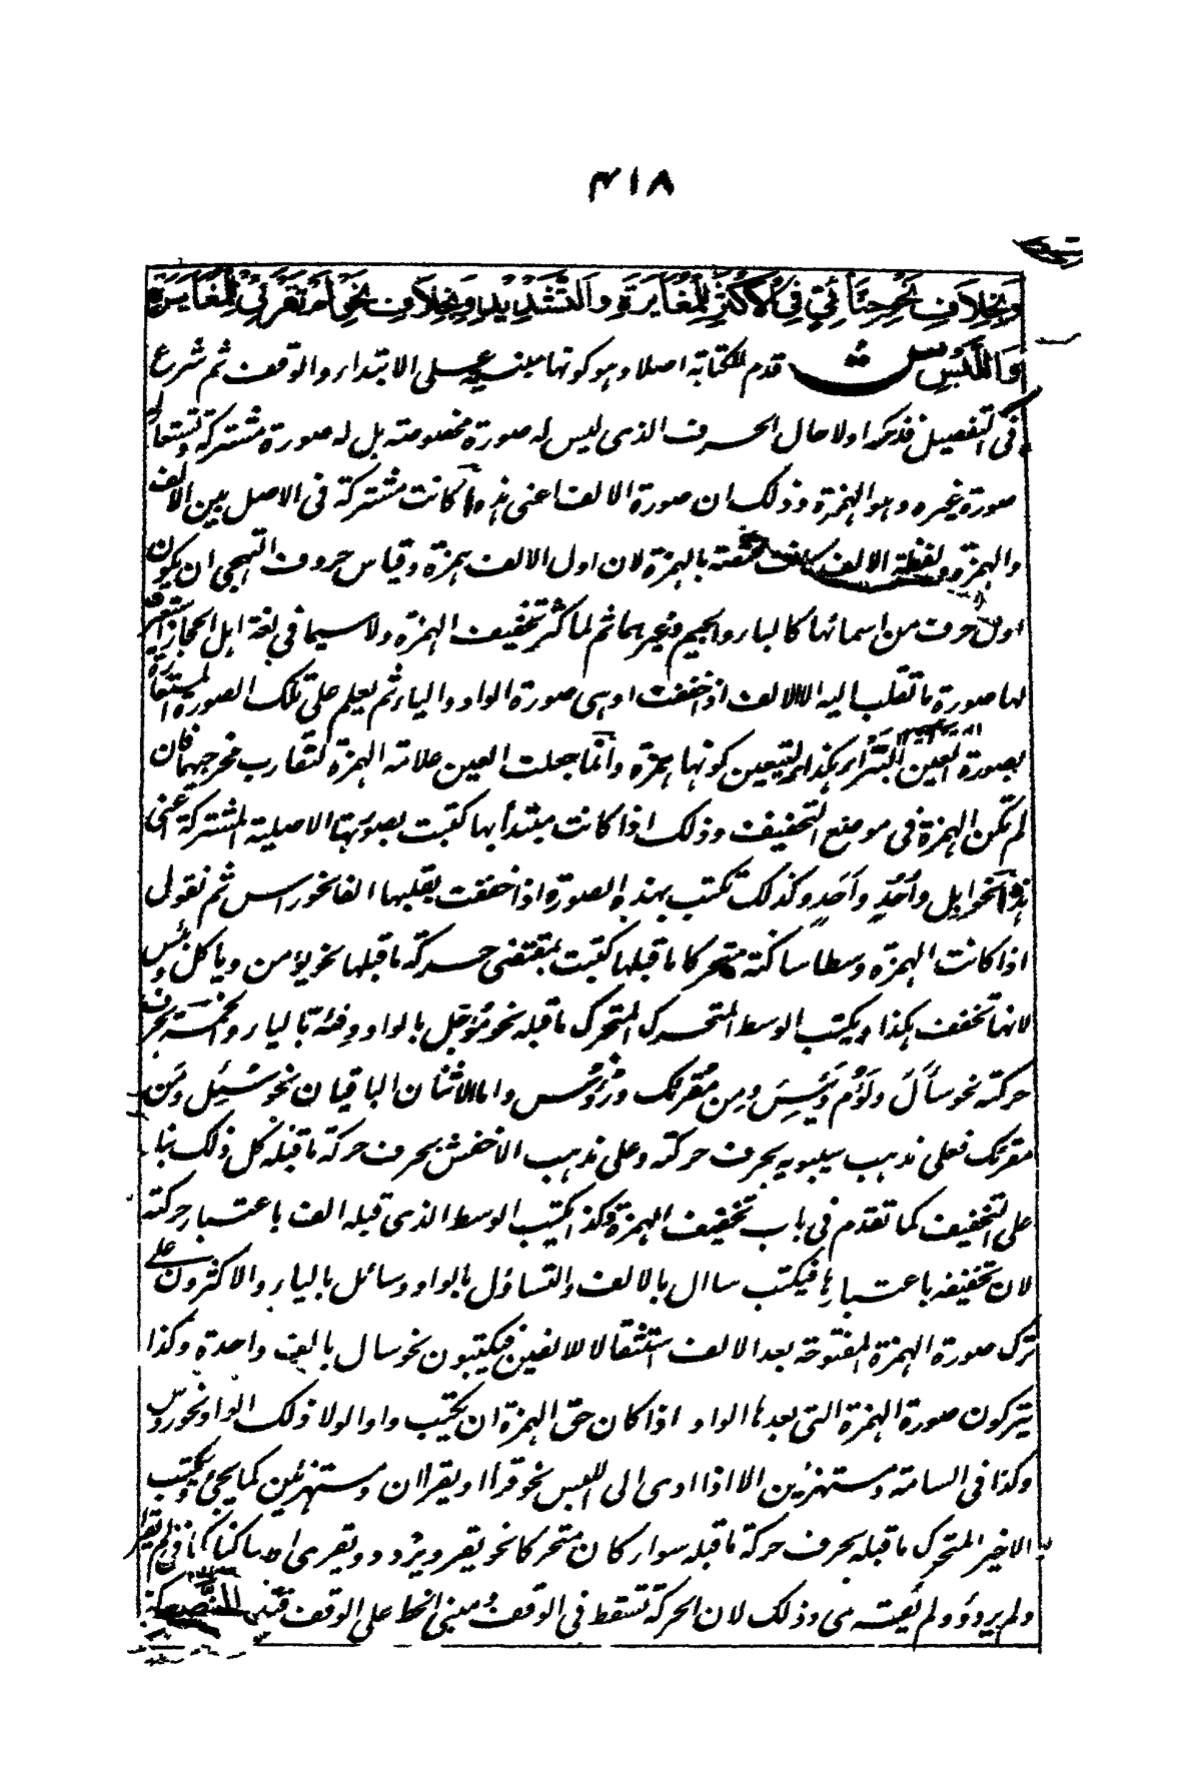 ٤١٨
وَبِخِلَافِ نَحْوِ حِنَّائِيٍّ فِي الْأَكْثَرِ لِلْمُغَايَرَةِ وَالتَّشْدِيدِ وَبِخِلَافِ نَحْوِ لَمْ تَقْرَئِي لِلْمُغَايَرَةِ
وَاللَّبْسِ ش قدم للكتابة اصلا وهو كونها مبنية على الابتداء والوقف ثم شرع
فى التفصيل فذكر اولا حال الحرف الذى ليس له صورة مخصوصة بل له صورة مشتركة وتستعار له
صورة غيره وهو الهمزة وذلك ان صورة الالف اعنى هذه ا كانت مشتركة فى الاصل بين الالف
والهمزة ولفظة الالف كانت مختصة بالهمزة لان اول الالف همزة وقياس حروف التهجى ان يكون
اول حرف من اسمائها كالباء والجيم وغيرهما ثم لما كثر تخفيف الهمزة ولا سيما فى لغة اهل الحجاز استعير
لها صورة ما تقلب اليه الالف اذا خففت وهى صورة الواو والياء ثم يعلم على تلك الصورة المستعارة
بصورة العين البتراء هكذا ء لتيعين كونها همزة وانما جعلت العين علامة الهمزة لتقارب مخرجيهما فان
لم تكن الهمزة فى موضع التخفيف وذلك اذا كانت مبتدأ بها كتبت بصورتها الاصلية المشتركة اعنى
هذه ا نحو ابل وأُحُدٍ وأَحَدٍ وكذلك تكتب بهذه الصورة اذا خففت بقلبها الفا نحو راس ثم نقول
اذا كانت الهمزة وسطا ساكنة متحركا ما قبلها كتبت بمقتضى حركة ما قبلها نحو يؤمن وياكل وبئس
لانها تخفف هكذا ويكتب الوسط المتحرك المتحرك ما قبله نحو مُؤَجَّل بالواو وفِئَة بالياء والخمسة بحرف
حركته نحو سأَلَ ولَؤُمَ ويَئِسَ ومِن مُقْرِئِك ورُؤُس واما الاثنان الباقيان نحو سُئِل ومن
مقرئك فعلى مذهب سيبويه بحرف حركته وعلى مذهب الاخفش بحرف حركة ما قبله كل ذلك بناء
على التخفيف كما تقدم فى باب تخفيف الهمزة وكذا يكتب الوسط الذى قبله الف باعتبار حركته
لان تخفيفه باعتبارها فيكتب ساال بالالف والتساؤل بالواو وسائل بالياء والاكثرون على
ترك صورة الهمزة المفتوحة بعد الالف استثقالا للالفين فيكتبون نحو سال بالف واحدة وكذا
يتركون صورة الهمزة التى بعدها الواو اذا كان حق الهمزة ان يكتب واوا لولا ذلك الواو نحو رؤس
وكذا فى السامة ومستهزئين الا اذا ادى الى اللبس نحو قرأا ويقراان ومستهزئين كما يجئ ويكتب
الاخير المتحرك ما قبله بحرف حركة ما قبله سواء كان متحركا نحو يقرء ويردء ويقرئ او ساكنا كما فى لم يقرا
ولم يردؤ ولم يقرئ وذلك لان الحركة تسقط فى الوقف ومبنى الخط على الوقف